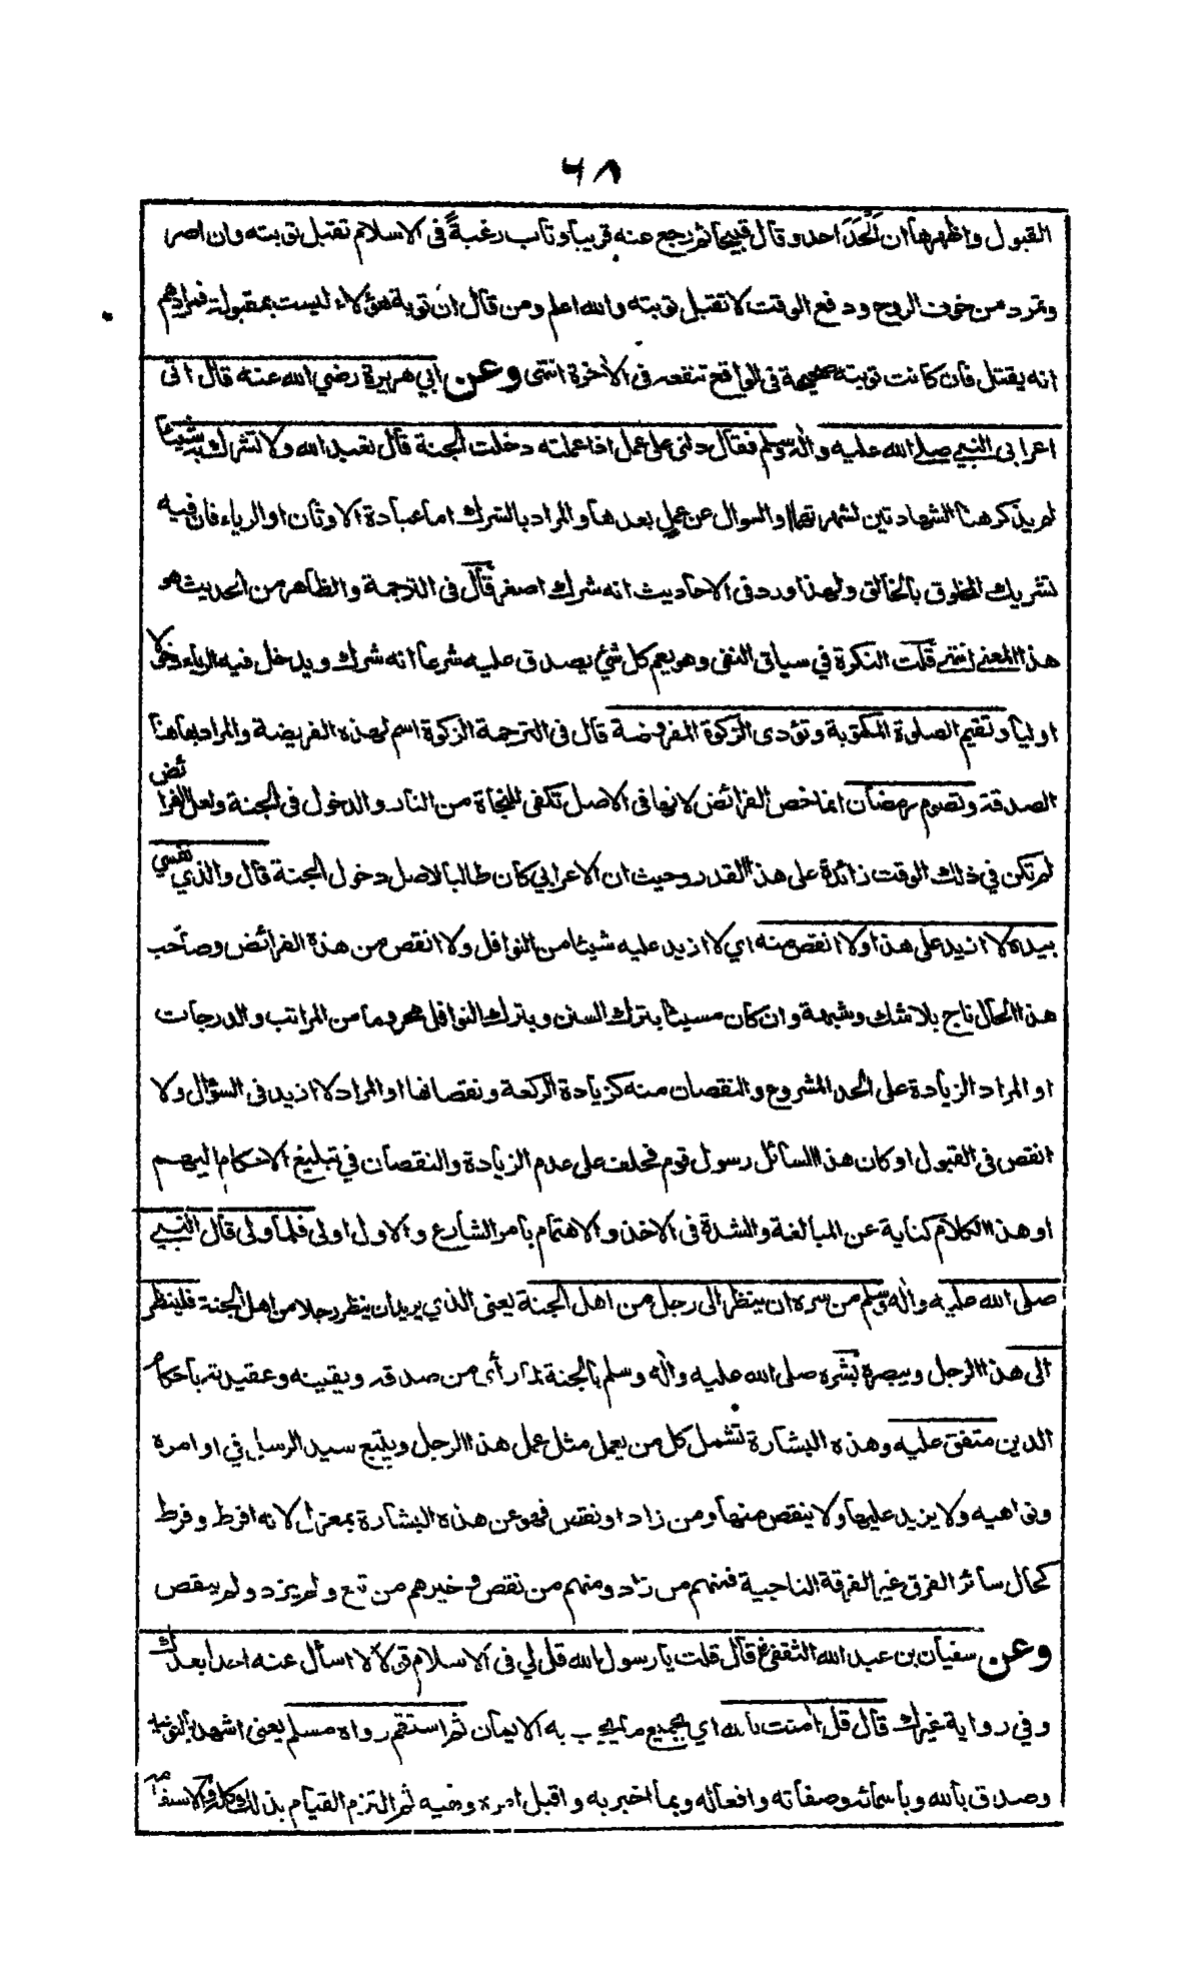 ٦٨
القبول واظهرها ان الحد احد وقال قبيحا ثم رجع عنه قريبا وتاب رغبةً فى الاسلام تقبل توبته وان اصر
وتمرد من خوف الروح ودفع الوقت لا تقبل توبته والله اعلم ومن قال ان توبة هؤلاء ليست بمقبولة فمرادهم
انه يقتل فان كانت توبته صحيحة فى الواقع تنفعه فى الآخرة انتهى وعن ابي هريرة رضي الله عنه قال اتى
اعرابى النبي صلى الله عليه واله وسلم فقال دلنى على عمل اذا عملته دخلت الجنة قال تعبد الله ولا تشرك به شيئا
لم يذكر هنا الشهادتين لشهرتهما والسوال عن عمل بعدها والمراد بالشرك اما عبادة الاوثان او الرياء فان فيه
تشريك المخلوق بالخالق ولهذا ورد فى الاحاديث انه شرك اصغر قال فى الترجمة والظاهر من الحديث هو
هذا المعنى انتهى قلت النكرة في سياق النفى وهو يعم كل شئ يصدق عليه شرعا انه شرك ويدخل فيه الرياء دخولا
اوليا وتقيم الصلوة المكتوبة وتؤدى الزكوة المفروضة قال فى الترجمة الزكوة اسم لهذه الفريضة والمراد بها هنا
الصدقة وتصوم رمضان انما خص الفرائض لانها فى الاصل تكفى للنجاة من النار والدخول فى الجنة ولعل الفرائض
لم تكن في ذلك الوقت زائدة على هذا القدر وحيث ان الاعرابي كان طالبا لاصل دخول الجنة قال والذي نفسي
بيده لا ازيد على هذا ولا انقص منه اي لا ازيد عليه شيئا من النوافل ولا انقص من هذه الفرائض وصاحب
هذا الحال ناج بلا شك وشبهة وان كان مسيئا بترك السنن وبترك النوافل محروما من المراتب والدرجات
او المراد الزيادة على الحد المشروع والنقصان منه كزيادة الركعة ونقصانها او المراد لا ازيد فى السؤال ولا
انقص فى القبول او كان هذا السائل رسول قوم فحلف على عدم الزيادة والنقصان في تبليغ الاحكام اليهم
او هذا الكلام كناية عن المبالغة والشدة فى الاخذ والاهتمام بامر الشارع والاول اولى فلما ولى قال النبي
صلى الله عليه واله وسلم من سره ان ينظر الى رجل من اهل الجنة يعنى الذي يريد ان ينظر رجلا من اهل الجنة فلينظر
الى هذا الرجل ويبصره بشره صلى الله عليه واله وسلم بالجنة لما رأى من صدقه ويقينه وعقيدته باحكام
الدين متفق عليه وهذه البشارة تشمل كل من يعمل مثل عمل هذا الرجل ويتبع سيد الرسل في اوامره
ونواهيه ولا يزيد عليها ولا ينقص منها ومن زاد او نقص فهو عن هذه البشارة بمعزل لانه افرط وفرط
كحال سائر الفرق غير الفرقة الناجية فمنهم من زاد ومنهم من نقص وخيرهم من تبع ولم يزد ولم ينقص
وعن سفيان بن عبد الله الثقفي قال قلت يا رسول الله قل لي فى الاسلام قولا لا اسأل عنه احدا بعدك
وفي رواية غيرك قال قل امنت بالله اي بجميع ما يجب به الايمان ثم استقم رواه مسلم يعنى اشهد بالوحدانية
وصدق بالله وباسمائه وصفاته وافعاله وبما اخبر به واقبل امره ونهيه ثم التزم القيام بذلك